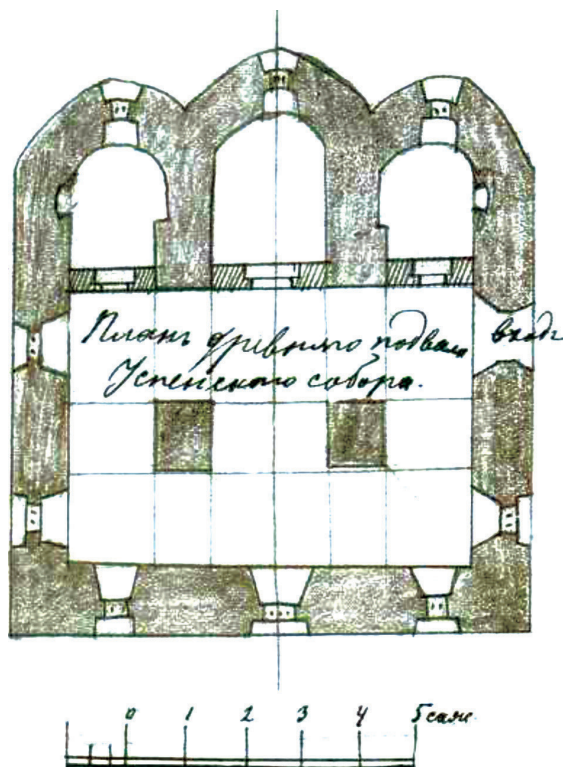 Планъ древняго подвала входъ
Успенскаго собора.
0 1 2 3 4 5 саж.